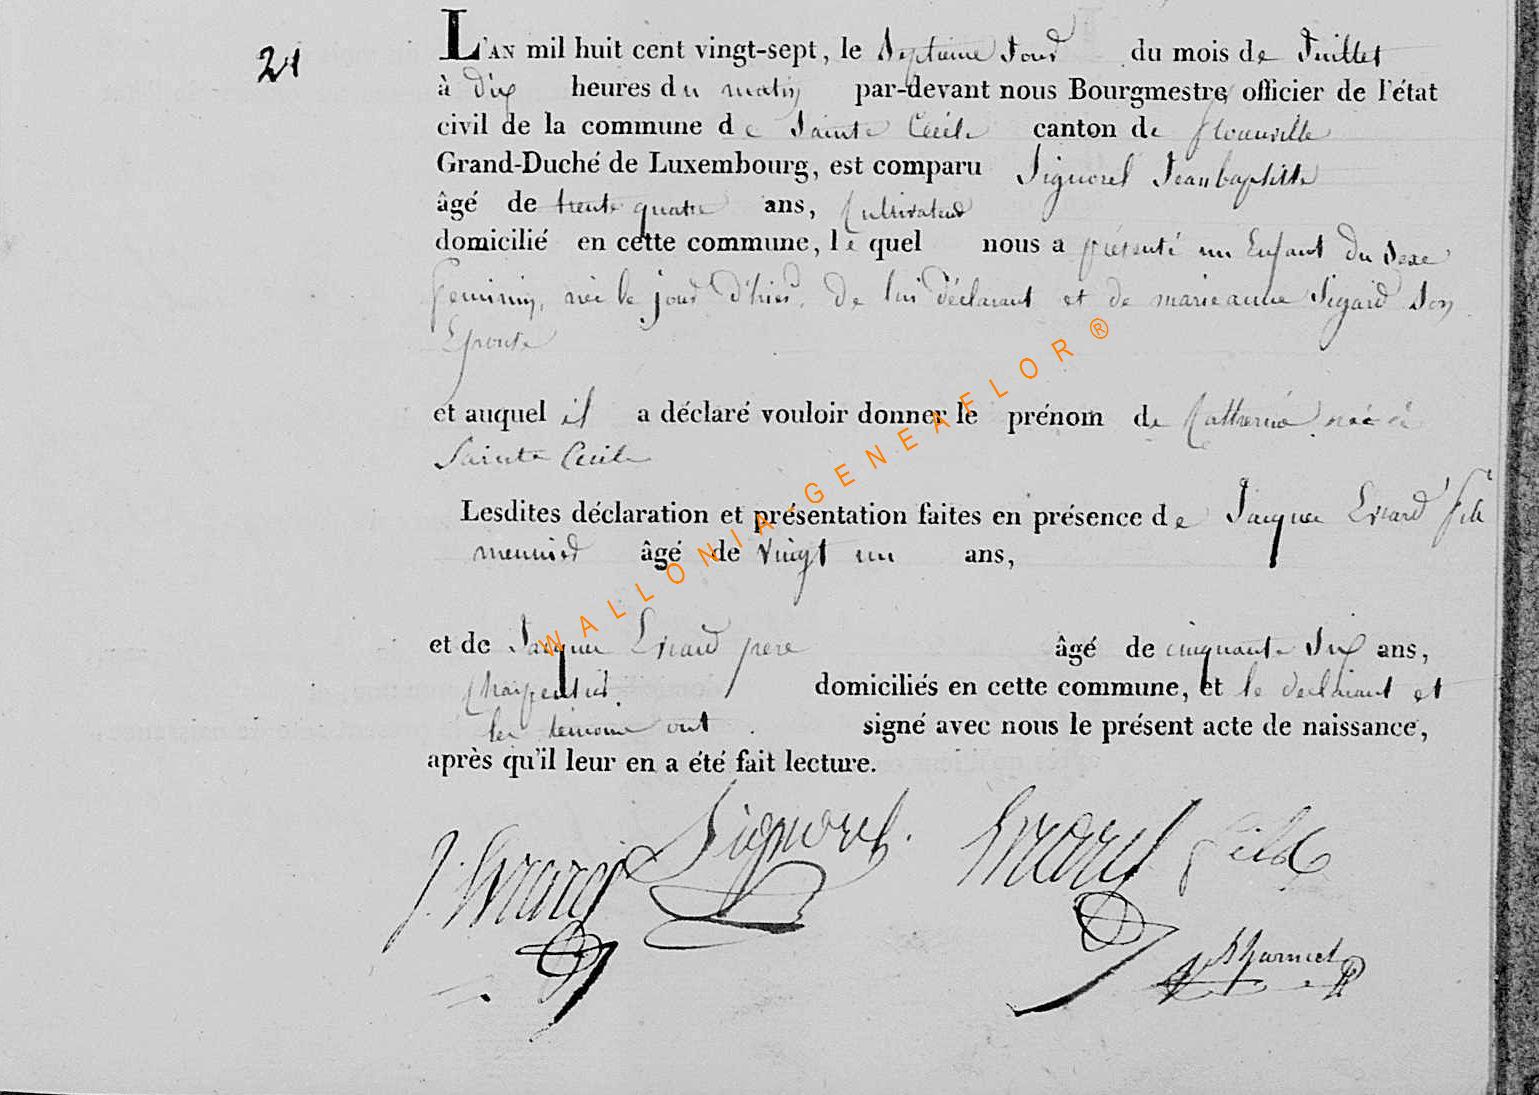 21
L'AN mil huit cent vingt-sept, le Septieme Jour du mois de Juillet
à dix heures du matin par-devant nous Bourgmestre officier de l'état
civil de la commune de Sainte Cecile canton de florenville
Grand-Duché de Luxembourg, est comparu Signorel Jean baptiste
âgé de trente quatre ans, Cultivateur
domicilié en cette commune, lequel nous a présenté un Enfant du Sexe
feminin, née le jour d'hier, de lui déclarant et de marie anne Sigard Son
Epouse
et auquel il a déclaré vouloir donner le prénom de Catherine née à
Sainte Cecile
Lesdites déclaration et présentation faites en présence de Jacques Evrard fils
meunier âgé de vingt un ans,
et de Jacques Evrard pere âgé de cinquante Six ans,
Charpentier domiciliés en cette commune, et le declarant et
les temoins ont signé avec nous le présent acte de naissance,
après qu'il leur en a été fait lecture.
J. Evrard Signorel. Evrard fils
WALLONIA-GENEAFLOR ®